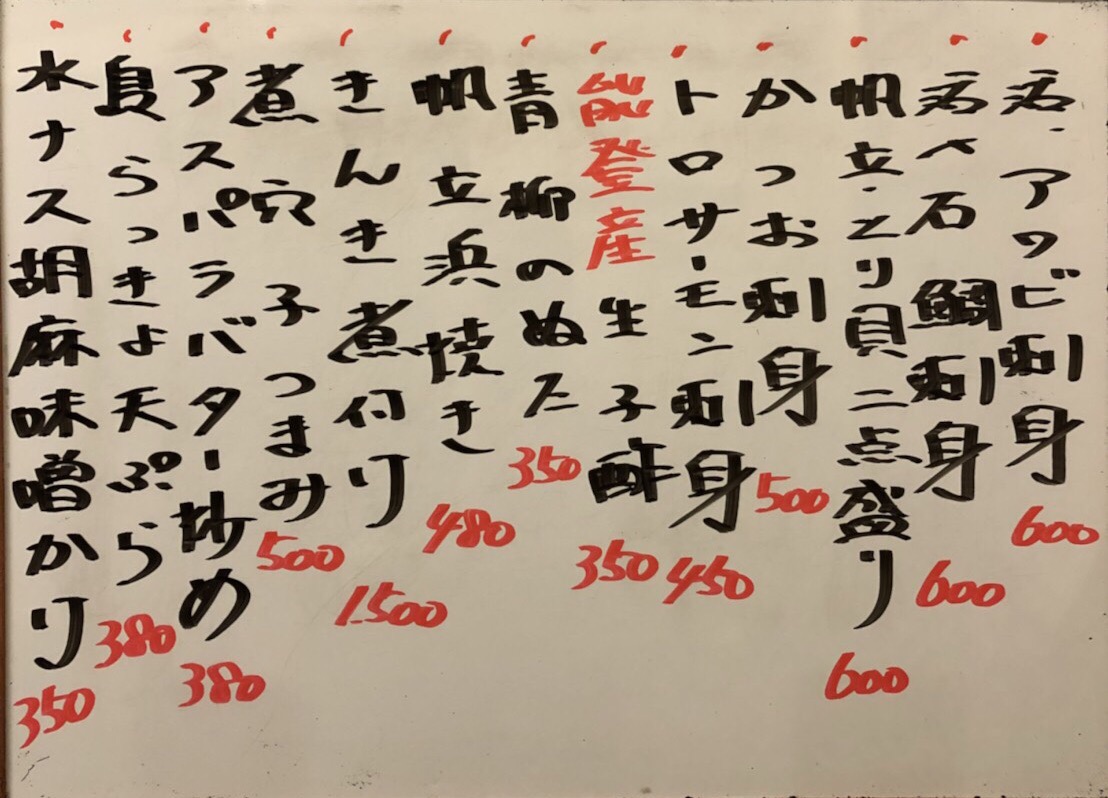 活・アワビ刺身 600
活〆石鯛刺身 600
帆立・とり貝二点盛り 600
かつお刺身 500
トロサーモン刺身 450
能登産生子酢 350
青柳のぬた 350
帆立浜焼き 480
きんき煮付け 1.500
煮穴子つまみ 500
アスパラバター炒め 380
島らっきょ天ぷら 380
水ナス胡麻味噌かけ 350